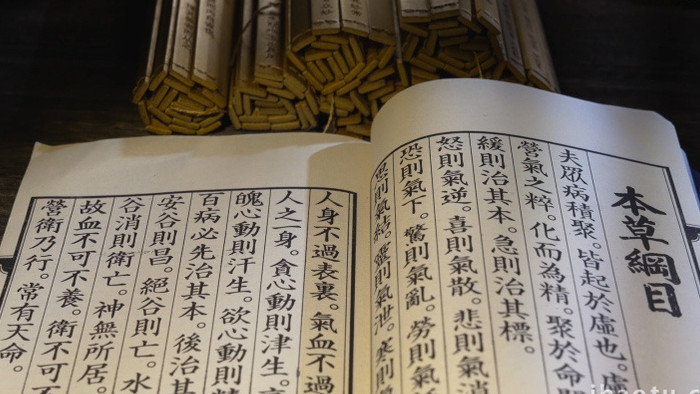 本草綱目
夫眾病積聚。皆起於虛也。虛
營氣之粹。化而為精。聚於命
緩則治其本。急則治其標。
怒則氣逆。喜則氣散。悲則氣消
恐則氣下。驚則氣亂。勞則氣
思則氣結。
人身不過表裏。氣血不過
人之一身。貪心動則津生。
魄心動則汗生。欲心動則精
百病必先治其本。後治其
安谷則昌。絕谷則亡。水
谷消則衛亡。神無所居。
故血不可不養。衛不可不
營衛乃行。常有天命。